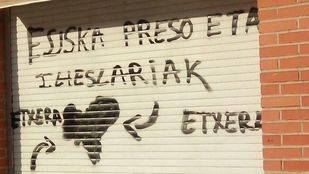 ESISKA PRESO ETA
IHESLARIAK
ETXERA ETXERA